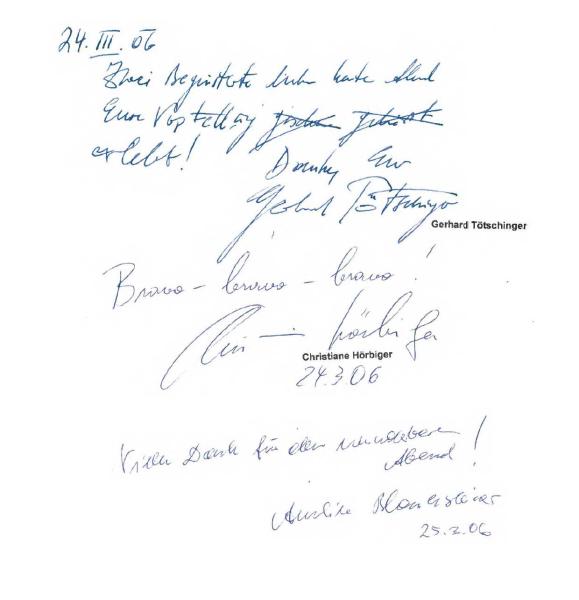 24. III. 06
Zwei Begeisterte haben heute Abend
Eure Vorstellung gesehen gehört
erlebt!
Danke, Euer
Gerhard Tötschinger
Gerhard Tötschinger
Bravo - bravo - bravo!
Christiane Hörbiger
Christiane Hörbiger
24.3.06
Vielen Dank für den wunderbaren
Abend!
25.3.06